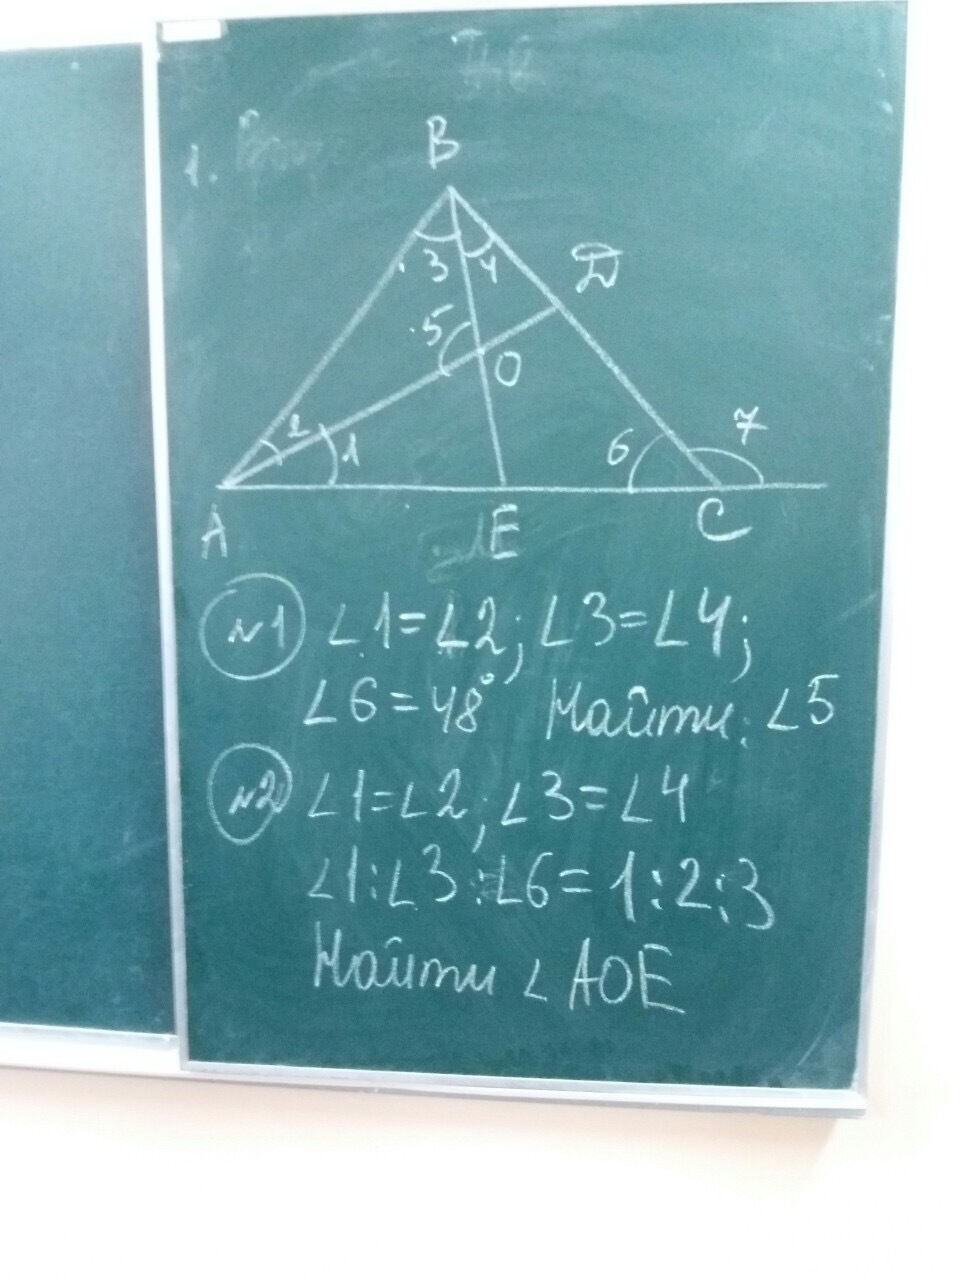 1.
B
3 4
D
5
O
2 1
6
7
A
E
C
№1 ∠1=∠2; ∠3=∠4;
∠6=48° Найти: ∠5
№2 ∠1=∠2, ∠3=∠4
∠1:∠3:∠6=1:2:3
Найти ∠AOE